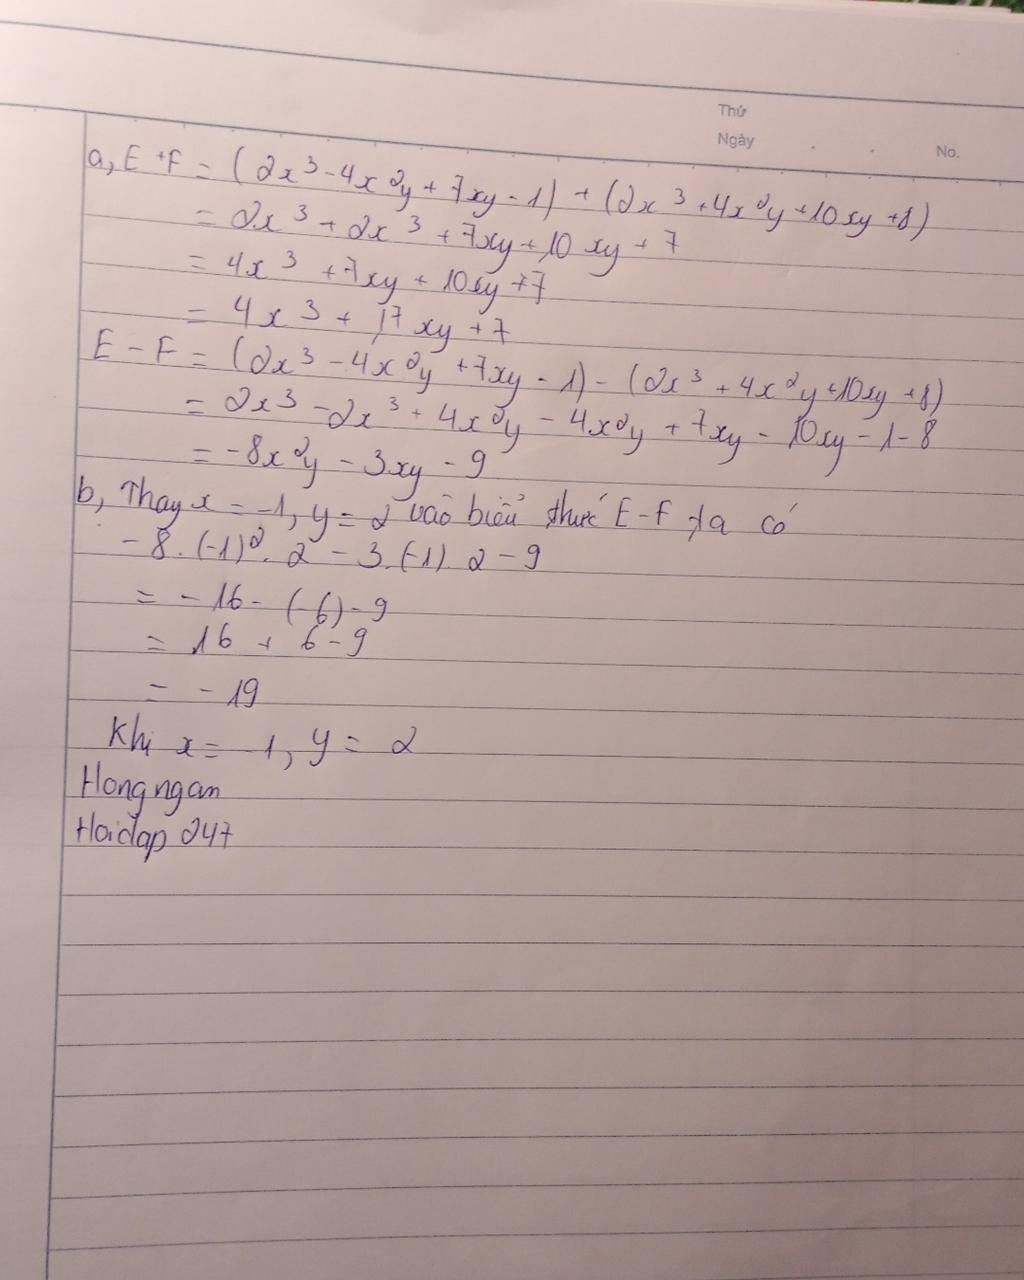 Thứ
Ngày . . No.
a, E + F = (2x³ - 4x²y + 7xy - 1) + (2x³ + 4x²y + 10xy + 8)
= 2x³ + 2x³ + 7xy + 10xy + 7
= 4x³ + 7xy + 10xy + 7
= 4x³ + 17xy + 7
E - F = (2x³ - 4x²y + 7xy - 1) - (2x³ + 4x²y + 10xy + 8)
= 2x³ - 2x³ + 4x²y - 4x²y + 7xy - 10xy - 1 - 8
= -8x²y - 3xy - 9
b, Thay x = -1, y = 2 vào biểu thức E - F ta có
- 8 . (-1)² . 2 - 3 . (-1) . 2 - 9
= - 16 - (-6) - 9
= 16 + 6 - 9
= - 19
Khi x = -1, y = 2
Hongngan
Hoidap 247